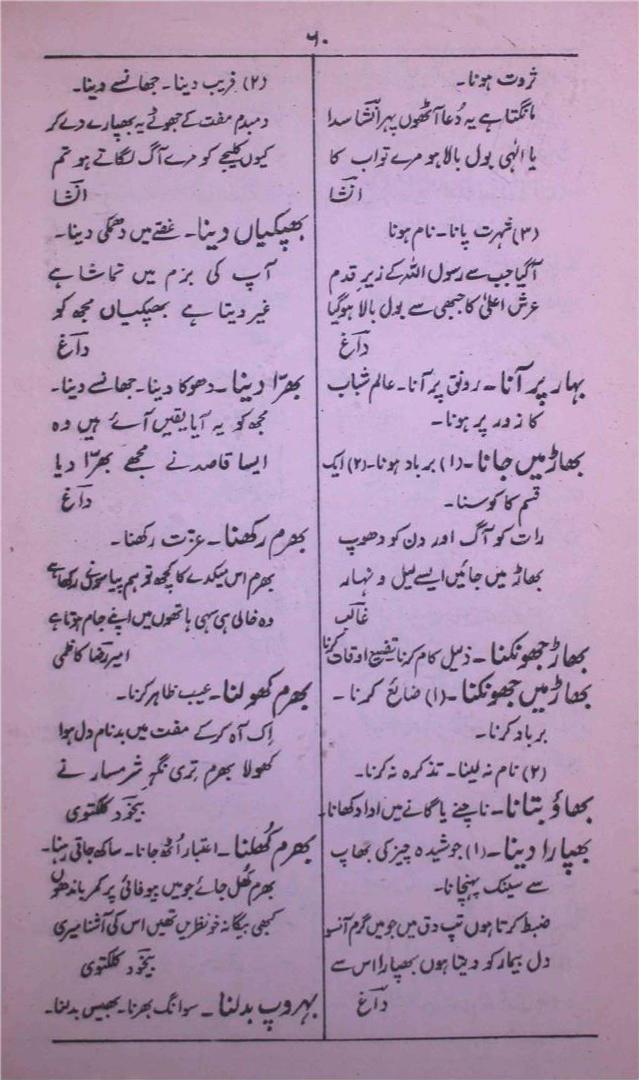 ۶۰
ثروت ہونا۔
مانگتا ہے یہ دُعا آٹھوں پہر انشا سدا
یا الٰہی بول بالا ہو مرے تواب کا
انشا
(۳) شہرت پانا۔ نام ہونا
آ گیا جب سے رسول اللہ کے زیرِ قدم
عرش اعلیٰ کا جبھی سے بول بالا ہوگیا
داغ
بہار پر آنا۔ رونق پر آنا۔ عالم شباب
کا زور پر ہونا۔
بھاڑ میں جانا۔ (۱) برباد ہونا۔ (۲) ایک
قسم کا کوسنا۔
رات کو آگ اور دن کو دھوپ
بھاڑ میں جائیں ایسے لیل و نہار
غالب
بھاڑ جھونکنا۔ ذلیل کام کرنا تضیع اوقات کرنا
بھاڑ میں جھونکنا۔ (۱) ضائع کرنا۔
برباد کرنا۔
(۲) نام نہ لینا۔ تذکرہ نہ کرنا۔
بھاؤ بتانا۔ ناچنے یا گانے میں ادا دکھانا۔
بھپارا دینا۔ (۱) جوشیدہ چیز کی بھاپ
سے سینک پہنچانا۔
ضبط کرتا ہوں تپ دق میں جو میں گرم آنسو
دل بیمار کو دیتا ہوں بھپارا اس سے
داغ
(۲) فریب دینا۔ جھانسے دینا۔
دمبدم مفت کے جھوٹے یہ بھپارے دے کر
کیوں کلیجے کو مرے آگ لگاتے ہو تم
انشا
بھپکیاں دینا۔ غصّے میں دھمکی دینا۔
آپ کی بزم میں تماشا ہے
غیر دیتا ہے بھپکیاں مجھ کو
داغ
بھرّا دینا۔ دھوکا دینا۔ جھانسے دینا۔
مجھ کو یہ آیا یقیں آئے ہیں وہ
ایسا قاصد نے مجھے بھرّا دیا
داغ
بھرم رکھنا۔ عزت رکھنا۔
بھرم اس میکدے کا کچھ تو ہم پیاسوں نے رکھا ہے
وہ خالی ہی سہی ہاتھوں میں اپنے جام ہوتا ہے
امیر رضا کاظمی
بھرم کھولنا۔ عیب ظاہر کرنا۔
اِک آہ کر کے مفت میں بدنام دل ہوا
کھولا بھرم تِری نگہِ شرمسار نے
بیخود کلکتوی
بھرم کُھلنا۔ اعتبار اُٹھ جانا۔ ساکھ جاتی رہنا۔
بھرم کُھل جائے جو میں بیوفائی پر کمر باندھوں
کبھی بیگانہ خو نظریں تھیں اس کی آشنا میری
بیخود کلکتوی
بہروپ بدلنا۔ سوانگ بھرنا۔ بھیس بدلنا۔